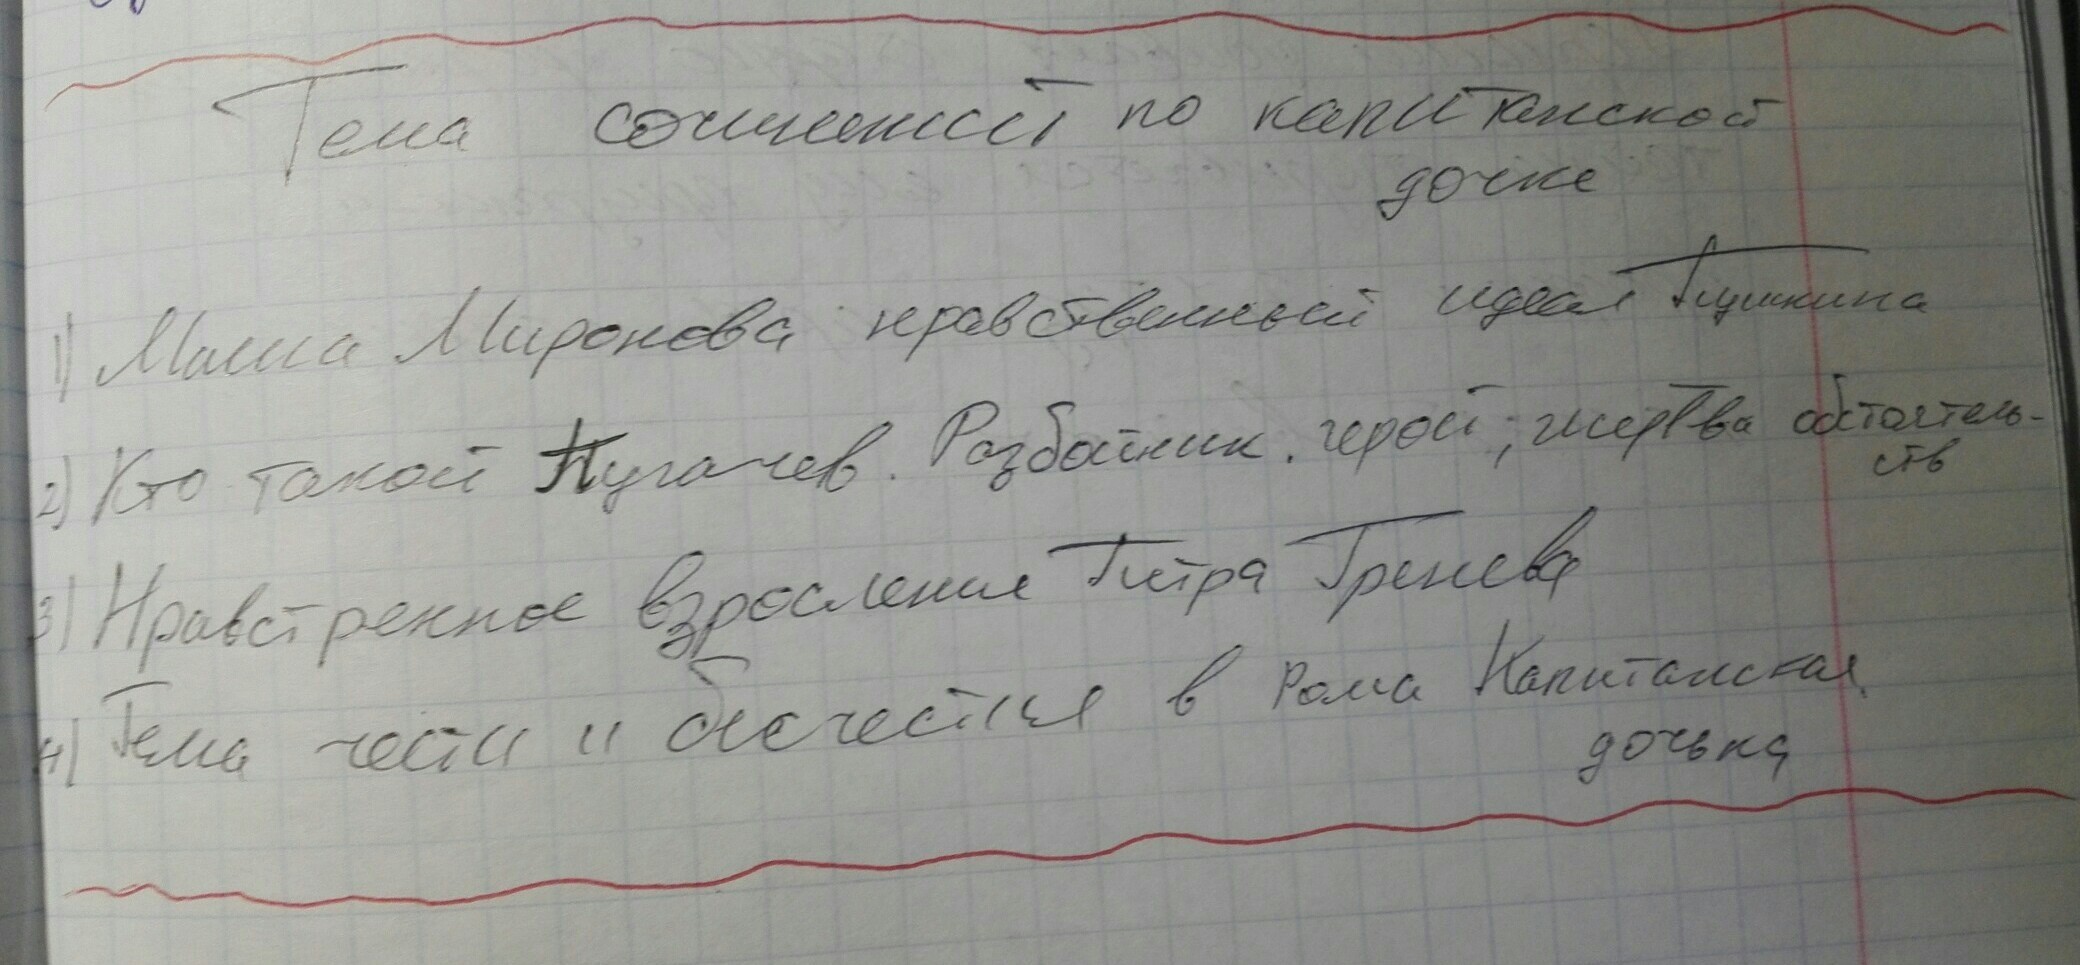 Тема сочинений по капитанской
дочке
1) Маша Миронова нравственный идеал Пушкина
2) Кто такой Пугачев. Разбойник. герой, жертва обстоятель-
ств
3) Нравственное взросление Петра Гренева
4) Тема чести и бесчестия в рома Капитанская
дочька